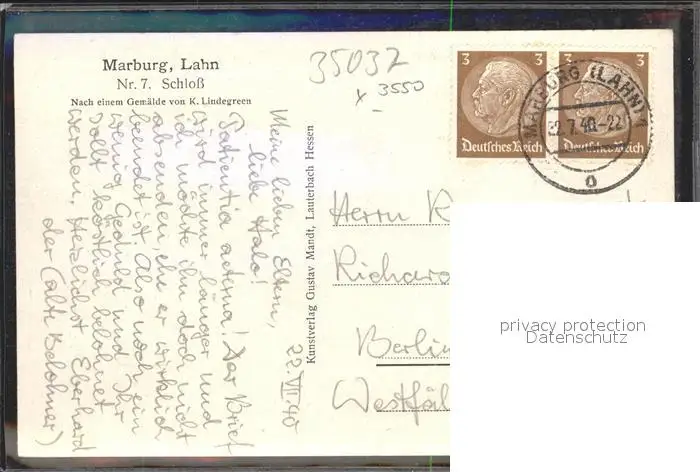 Marburg, Lahn
Nr. 7. Schloß
Nach einem Gemälde von K. Lindegreen
35032
x 3550
3
3
Deutsches Reich
Deutsches Reich
MARBURG (LAHN) 1
22.7.40.-22
Kunstverlag Gustav Mandt, Lauterbach Hessen
22.VII.40
Meine lieben Eltern,
liebe Halo!
Patientia aeterna! Der Brief
wird immer länger und
ich möchte ihn doch nicht
absenden, ehe er wirklich
beendet ist. Also noch ein
wenig Geduld und Ihr
sollt köstlich belohnt
werden. Herzlichst Eberhard
der (alte Belohner)
Herrn
Richard
Berlin
Westfäl
privacy protection
Datenschutz